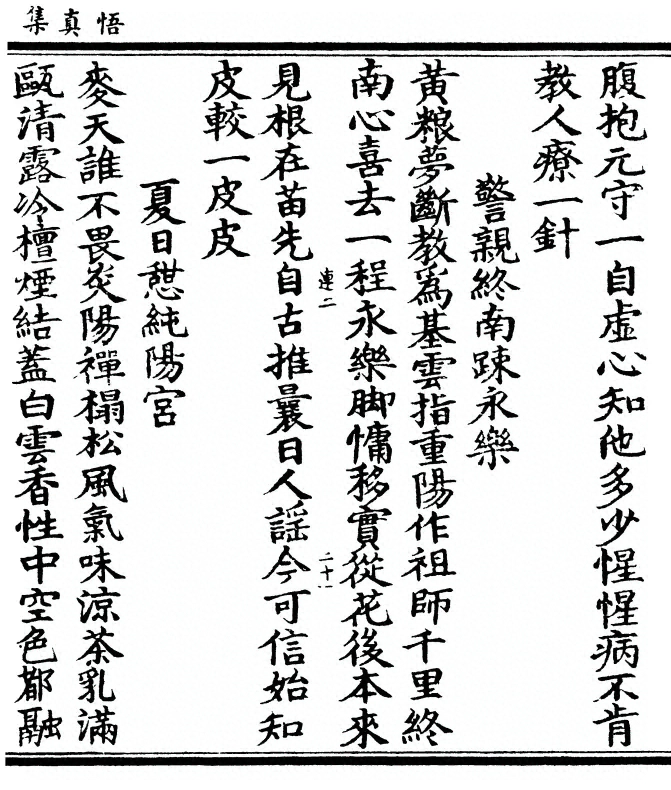 悟真集
腹抱元守一自虛心知他多少惺惺病不肯
教人療一針
警親終南踈永樂
黄粮夢斷教爲基雲指重陽作祖師千里終
南心喜去一程永樂脚慵移實從花後本來
見根在苗先自古推曩日人謡今可信始知
連二
二十一
皮較一皮皮
夏日憇純陽宮
麥天誰不畏炎陽禪榻松風氣味涼茶乳滿
甌清露冷檀煙結蓋白雲香性中空色都融